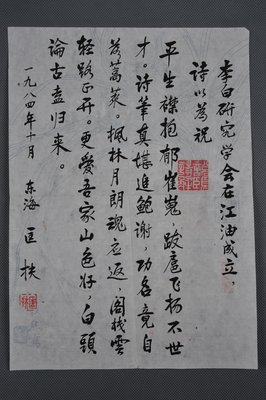 李白研究学会在江油成立，
诗以為祝
平生襟抱郁崔嵬，跋扈飞扬不世
才。诗笔真堪追鲍谢，功名竟自
蒿莱。枫林月朗魂应返，阁栈雲
轻路正开。更爱吾家山色好，白頭
论古盍归来。
一九八四年十月 东海 匡扶